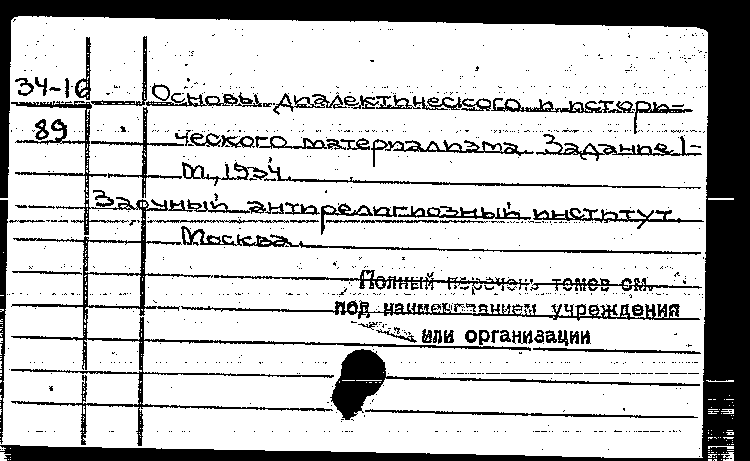 34-16
89
Основы диалектического и истори=
ческого материализма. Задание 1-
М., 1934.
Заочный антирелигиозный институт.
Москва.
Полный перечень томов см.
под наименованием учреждения
или организации